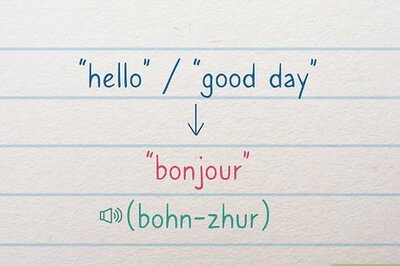 "hello" / "good day"
"bonjour"
(bohn-zhur)